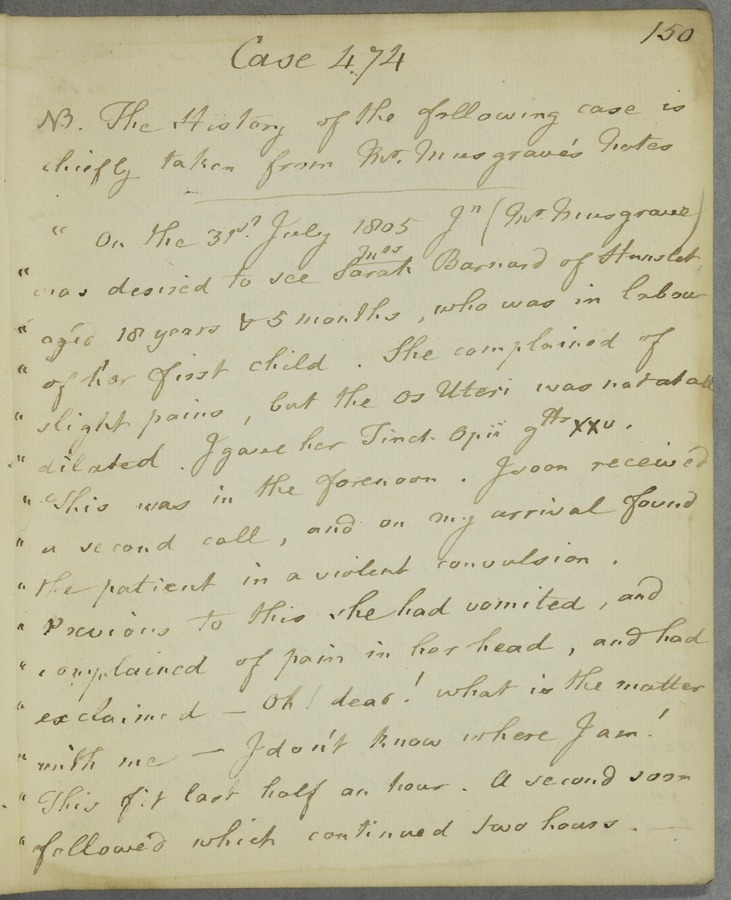 150
Case 474
NB. The History of the following case is
chiefly taken from Mr. Musgrave's Notes
" On the 31st. July 1805 Jn (Mr. Musgrave)
Mrs
" was desired to see Sarah Barnard of Hunslet,
" aged 18 years & 5 months, who was in labour
" of her first child. She complained of
" slight pains, but the Os Uteri was not at all
" dilated. I gave her Tinct. Opii gtts xxv.
" This was in the forenoon. I soon received
" a second call, and on my arrival found
" the patient in a violent convulsion.
" Previous to this she had vomited, and
" complained of pain in her head, and had
" exclaimed — Oh! dear! what is the matter
" with me — I don't know where I am!
" This fit last half an hour. A second soon
" followed which continued two hours. —